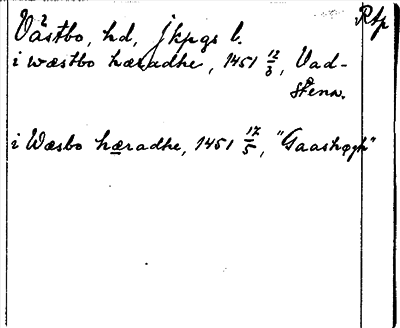 Västbo, hd, Jkpgs l. Rtp
i wæstbo hæradhe, 1451 12/3, Vad-
stena.
i Wæsbo hæradhe, 1451 17/5, "Gaashøgh"